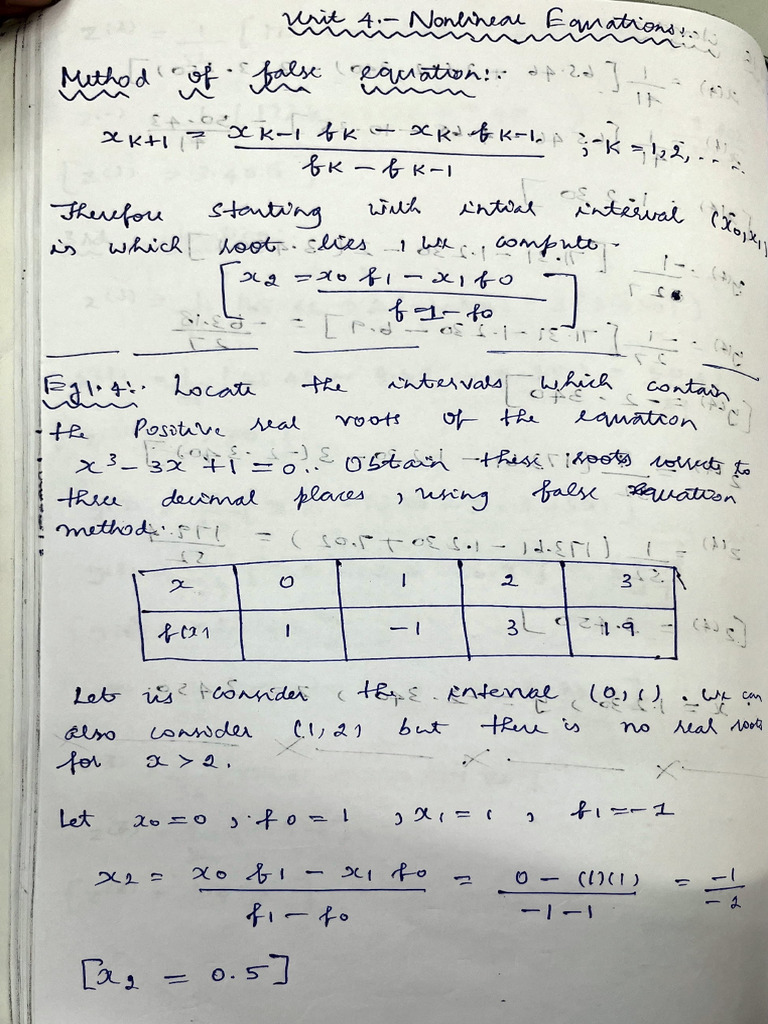 Unit 4.- Nonlinear Equations:-
Method of false equation:-
xK+1 = xK-1 fK - xK fK-1 / fK - fK-1 ; K = 1,2, ....
Therefore starting with intial interval (x0,x1)
is which root lies, we compute-
[x2 = x0 f1 - x1 f0 / f=1- f0]
Eg1.4:- Locate the intervals which contain
the Positive real roots of the equation
x³- 3x +1 = 0.. Obtain these roots correts to
three decimal places, using false equation
method:-
x 0 1 2 3
f(x) 1 -1 3 1.9
Let us consider the interval (0,1). we can
also consider (1,2) but there is no real roots
for x > 2.
Let x0 = 0, f0 = 1, x1 = 1, f1 = -1
x2 = x0 f1 - x1 f0 / f1 - f0 = 0 - (1)(1) / -1-1 = -1 / -2
[x2 = 0.5]